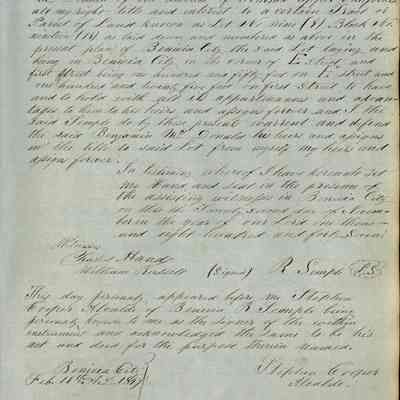 all my right title and interest to a certain Tract or
Parcel of Land known as Lot No nine (9) Block No
nineteen (19) as laid down and numbered as above in the
present plan of Benicia City the said Lot laying and
being in Benicia City in the corner of E Street and
first Street being one hundred and fifty feet on E Street and
one hundred and twenty five feet on first Street to have
and to hold with its appurtenances and advan-
tages to him his heirs and assigns forever and I the
said Semple do by these presents warrant and defend
the said Benjamin McDonald his heirs and assigns
in the title to said Lot from myself my heirs and
assigns forever.
In testimony whereof I have hereunto set
my Hand and seal in the presence of
the assisting witnesses in Benicia City
on this the Twenty Second day of
in the year of our Lord one Thous-
and eight hundred and forty Seven
Witness
Charles Hand
William (Signed) R Semple L.S.
This day personally appeared before me Stephen
Cooper Alcalde of Benicia R Semple being
personally known to me as the signer of the within
instrument and acknowledged the same to be his
act and deed for the purpose therein named.
Benicia City Stephen Cooper
Feb. Alcalde.